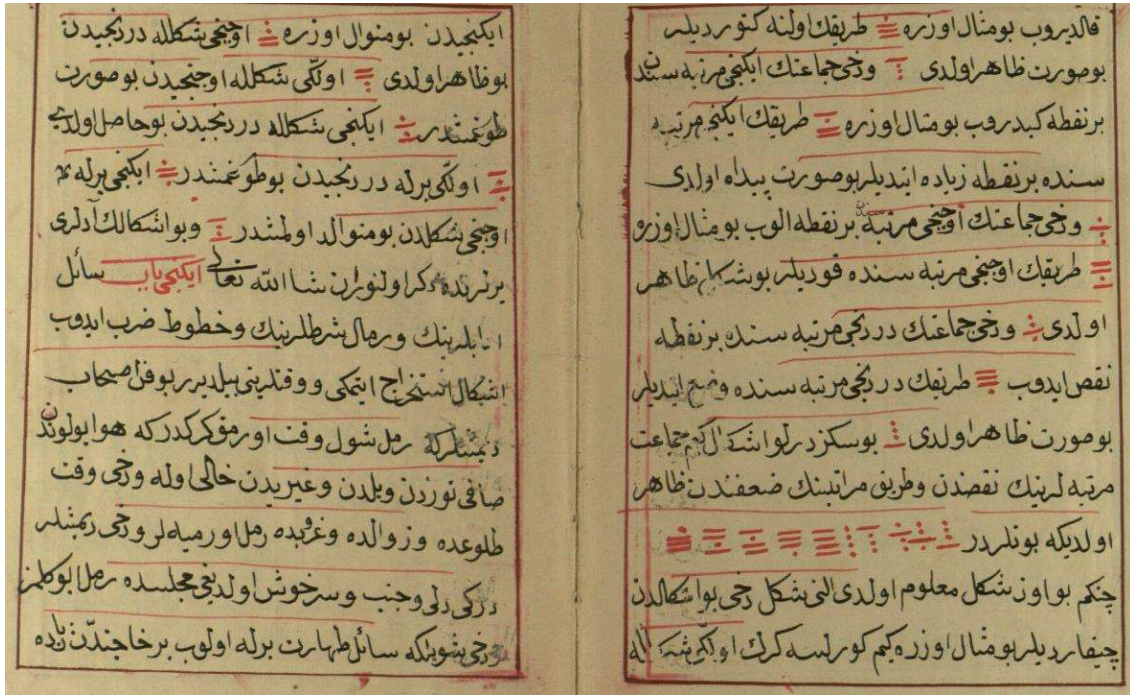 قالدیروب بومثال اوزره طریقك اولنه كتوردیلر
بوصورت ظاهر اولدی ودخی جماعتك ایكنجی مرتبه سندن
بر نقطه كیدروب بومثال اوزره طریقك ایكنجی مرتبه
سنده بر نقطه زیاده ایتدیلر بوصورت پیداه اولدی
ودخی جماعتك اوچنجی مرتبه سندن بر نقطه الوب بومثال اوزره
طریقك اوچنجی مرتبه سنده قودیلر بوشكل ظاهر
اولدی ودخی جماعتك دردنجی مرتبه سنده بر نقطه
نقص ایدوب طریقك دردنجی مرتبه سنده وضع ایتدیلر
بوصورت ظاهر اولدی بوسكزدرلو اشكال كیم جماعت
مرتبه لرینك نقصندن وطریق مراتبنك ضعفندن ظاهر
اولدیكه بونلردر
چنكم بو اون شكل معلوم اولدی التی شكل دخی بو اشكالدن
چیقاردیلر بومثال اوزره كیم كورلسه كرك اولكی شكله
ایكنجیدن بومنوال اوزره اوچنجی شكلله دردنجیدن
بوظاهر اولدی اولكی شكلله اوچنجیدن بوصورت
طوغمشدر ایكنجی شكلله دردنجیدن بوحاصل اولدی
اولكی برله دردنجیدن بوطوغمشدر ایكنجی برله
اوچنجی شكلدن بومنوالد اولمشدر وبو اشكالك آدلری
یرلریده ذكر اولنور ان شا الله تعالی ایكنجی باب سائل
ورمال شرطلرینك وخطوط ضرب ایدوب
اشكال استخراج ایتمكی ووقتلرینی بیلدیرر بوفن اصحاب
دیمشلركه رمل شول وقت اورمق كركدركه هوا بولوتدن
صافی توزدن ویلدن وغیریدن خالی اوله ودخی وقت
طلوعده وزوالده وغروبده رمل اورمیه لر ودخی دیمشلر
دركی دلی وجنب وسرخوش اولدیغی مجلسده رمل
ودخی شویله كه سائل طهارت برله اولوب بر خاجتدن